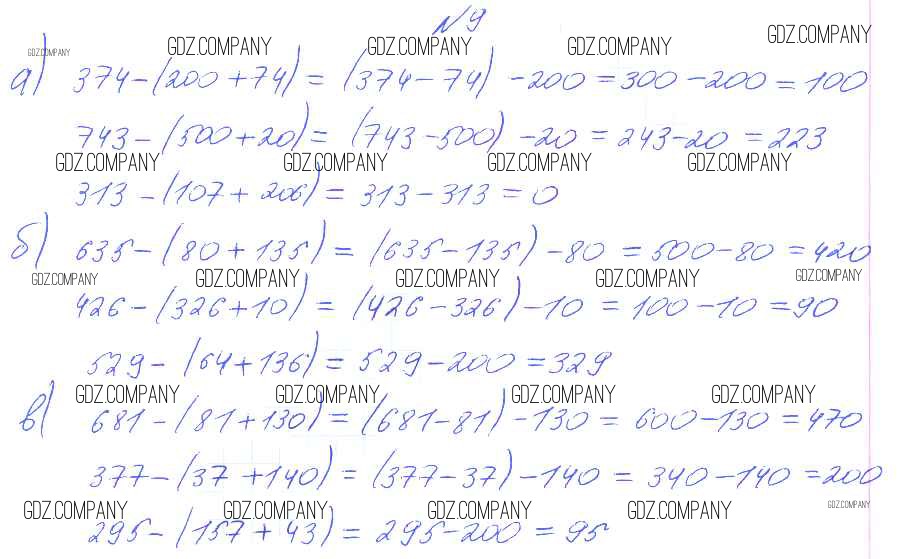 №9
GDZ.COMPANY GDZ.COMPANY GDZ.COMPANY GDZ.COMPANY GDZ.COMPANY
а) 374-(200+74)=(374-74)-200=300-200=100
743-(500+20)=(743-500)-20=243-20=223
GDZ.COMPANY GDZ.COMPANY GDZ.COMPANY GDZ.COMPANY
313-(107+206)=313-313=0
б) 635-(80+135)=(635-135)-80=500-80=420
GDZ.COMPANY GDZ.COMPANY GDZ.COMPANY GDZ.COMPANY GDZ.COMPANY
426-(326+10)=(426-326)-10=100-10=90
529-(64+136)=529-200=329
GDZ.COMPANY GDZ.COMPANY GDZ.COMPANY GDZ.COMPANY
в) 681-(81+130)=(681-81)-130=600-130=470
377-(37+140)=(377-37)-140=340-140=200
GDZ.COMPANY GDZ.COMPANY GDZ.COMPANY GDZ.COMPANY GDZ.COMPANY
295-(157+43)=295-200=95